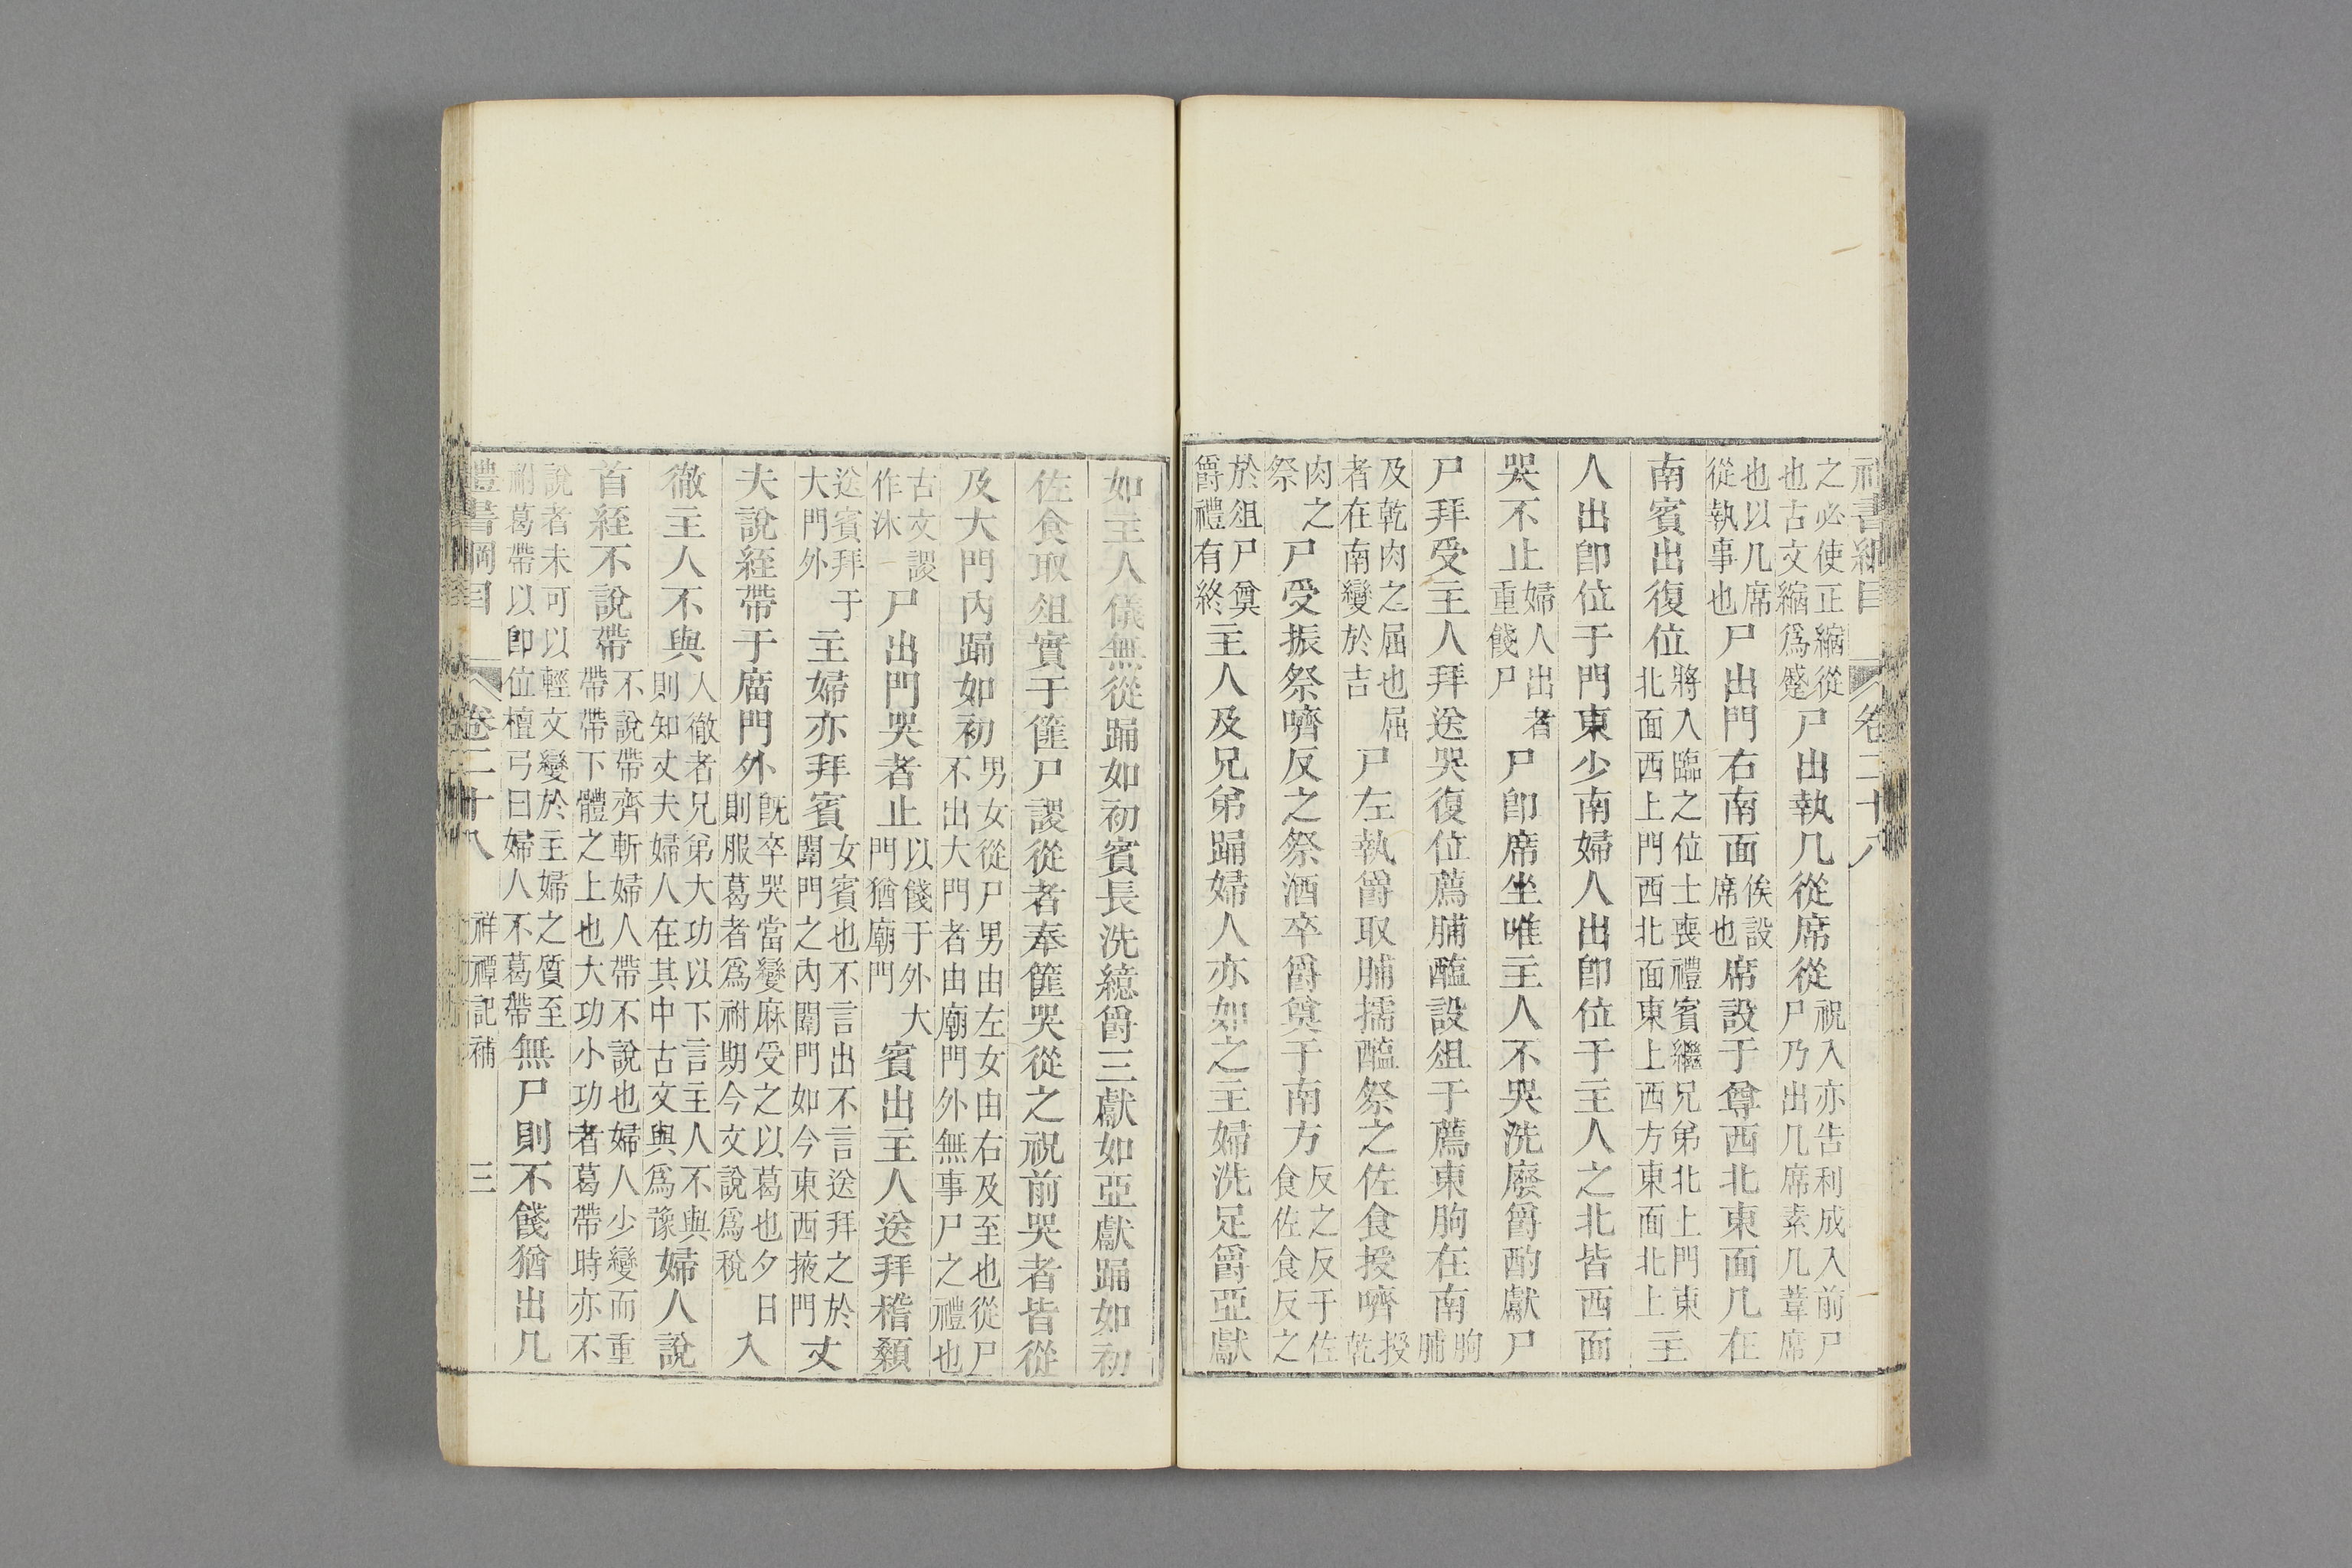 禮書綱目 卷二十八
之必使正縮從尸出執几從席從祝入亦告利成入前尸
也古文縮爲蹙尸乃出几席素几葦席
也以几席尸出門右南面俟設席設于尊西北東面几在
從執事也席也
南賓出復位將入臨之位士喪禮賓繼兄弟北上門東主
北面西上門西北面東上西方東面北上
人出卽位于門東少南婦人出卽位于主人之北皆西面
哭不止婦人出者尸卽席坐唯主人不哭洗廢爵酌獻尸
重餞尸
尸拜受主人拜送哭復位薦脯醢設俎于薦東朐在南朐
脯
及乾肉之屈也屈尸左執爵取脯擩醢祭之佐食授嚌授
者在南變於吉乾
肉之尸受振祭嚌反之祭酒卒爵奠于南方反之反于佐
祭食佐食反之
於俎尸奠主人及兄弟踊婦人亦如之主婦洗足爵亞獻
爵禮有終
如主人儀無從踊如初賓長洗繶爵三獻如亞獻踊如初
佐食取俎實于篚尸謖從者奉篚哭從之祝前哭者皆從
及大門內踊如初男女從尸男由左女由右及至也從尸
不出大門者由廟門外無事尸之禮也
古文謖尸出門哭者止以餞于外大賓出主人送拜稽顙
作沐門猶廟門
送賓拜于主婦亦拜賓女賓也不言出不言送拜之於丈
大門外闈門之內闈門如今東西掖門
夫說絰帶于廟門外旣卒哭當變麻受之以葛也夕日入
則服葛者爲祔期今文說爲稅
徹主人不與人徹者兄弟大功以下言主人不與婦人說
則知丈夫婦人在其中古文與爲豫
首絰不說帶不說帶齊斬婦人帶不說也婦人少變而重
帶帶下體之上也大功小功者葛帶時亦不
說者未可以輕文變於主婦之質至無尸則不餞猶出几
祔葛帶以卽位檀弓曰婦人不葛帶
禮書綱目 卷二十八 祥禫記補 三